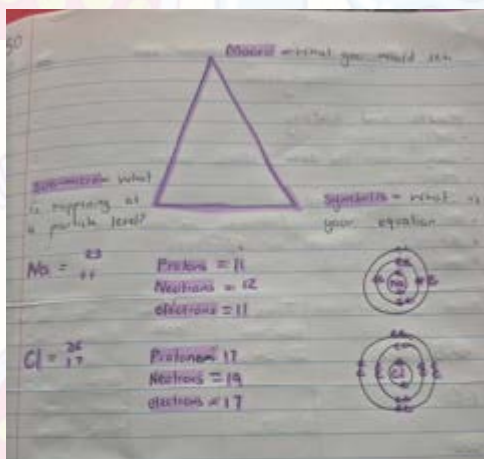 50
Macro - what you would see
Sub-micro - what
is happening at
a particle level?
Symbolic - what is
your equation
Na = 23
11
Protons = 11
Neutrons = 12
electrons = 11
Na
Cl = 36
17
Protons = 17
Neutrons = 19
electrons = 17
Cl